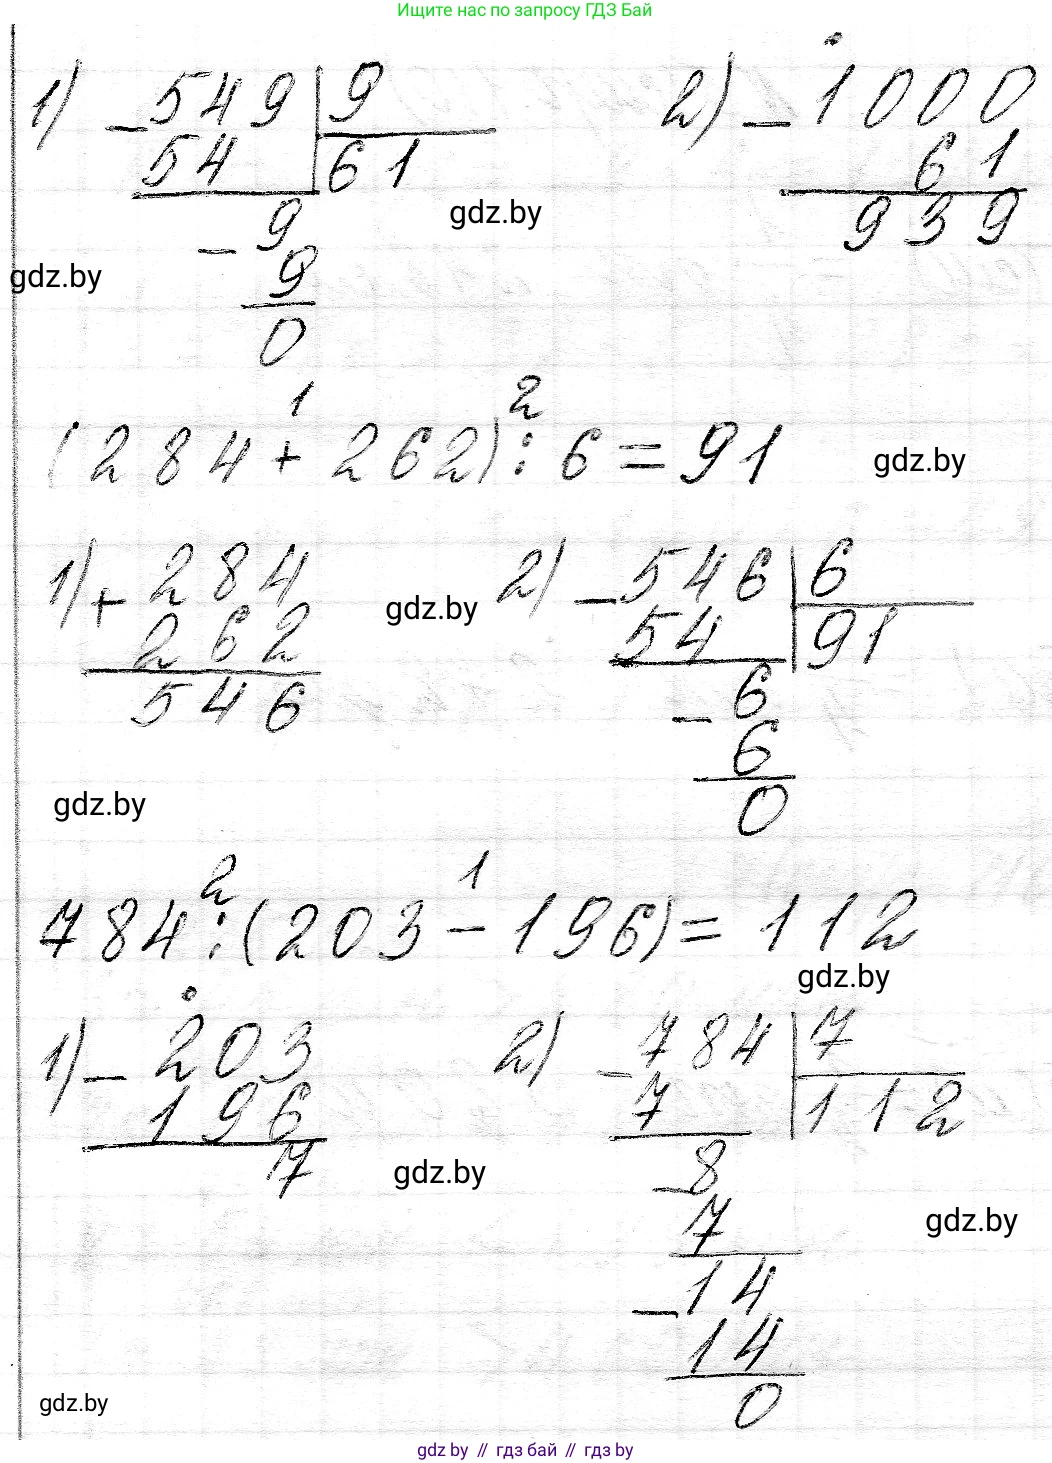 Ищите нас по запросу ГДЗ Бай
1) - 549 | 9 2) - 1000
54 61 61
gdz.by
- 9 939
gdz.by
9
0
1 2
(284 + 262) : 6 = 91 gdz.by
1) + 284 gdz.by 2) - 546 | 6
262 54 91
546 - 6
6
gdz.by 0
2 1
784 : (203 - 196) = 112
gdz.by
1) - 203 2) - 784 | 7
196 7 112
7 gdz.by - 8
7 gdz.by
- 14
14
gdz.by 0
gdz by // гдз бай // гдз by